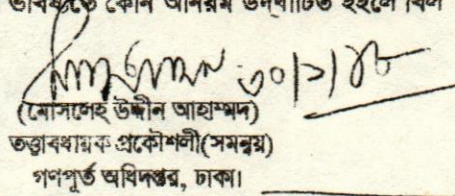 ভবিষ্যতে কোন অনিয়ম উদ্ঘাটিত হইলে বিল
৩০/১/১৮
(মোসলেহ উদ্দীন আহাম্মদ)
তত্ত্বাবধায়ক প্রকৌশলী(সমন্বয়)
গণপূর্ত অধিদপ্তর, ঢাকা।